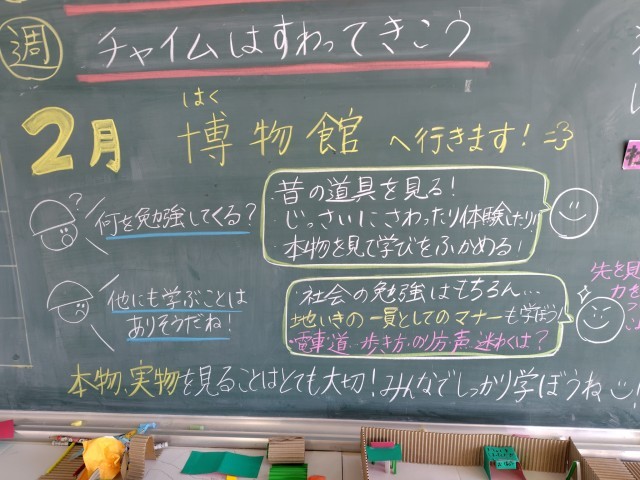 週
チャイムはすわってきこう
はく
2月 博物館へ行きます!
?
何を勉強してくる?
昔の道具を見る!
じっさいにさわったり体験したり!!
本物を見て学びをふかめる!
他にも学ぶことは
ありそうだね!
・社会の勉強はもちろん…
地いきの一員としてのマナーも学ぼう!
・電車・道・歩き方・のり方・声・迷わくは?
先を見
力を
本物、実物を見ることはとても大切!みんなでしっかり学ぼうね